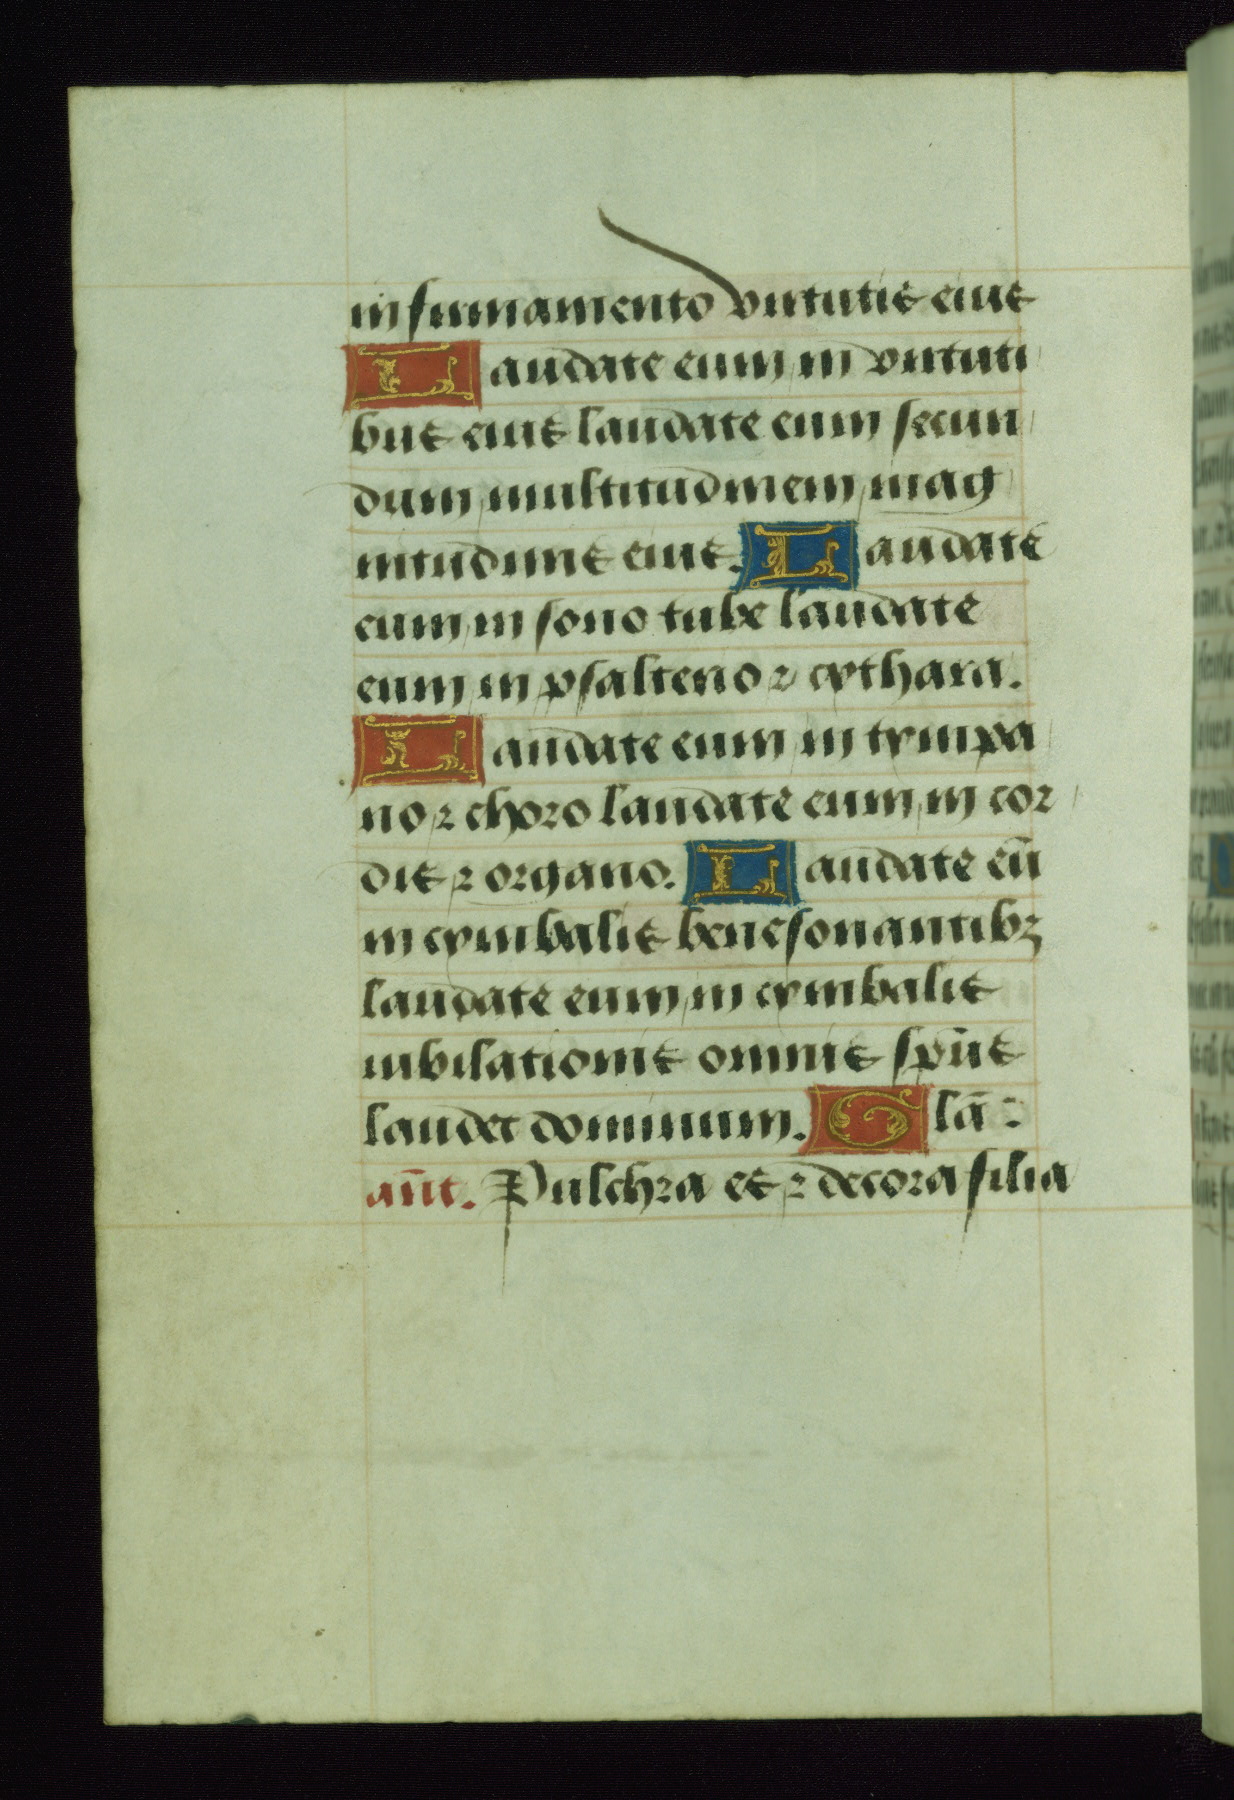 in firmamento virtutis eius
Laudate eum in virtuti
bus eius laudate eum secun
dum multitudinem mag
nitudinis eius. Laudate
eum in sono tube laudate
eum in psalterio ⁊ cythara.
Laudate eum in tympa
no ⁊ choro laudate eum in cor
dis ⁊ organo. Laudate eū
in cymbalis benesonantibꝫ
laudate eum in cymbalis
iubilationis omnis sp̄us
laudet dominum. Glā :
an̄t. Pulchra es ⁊ decora filia